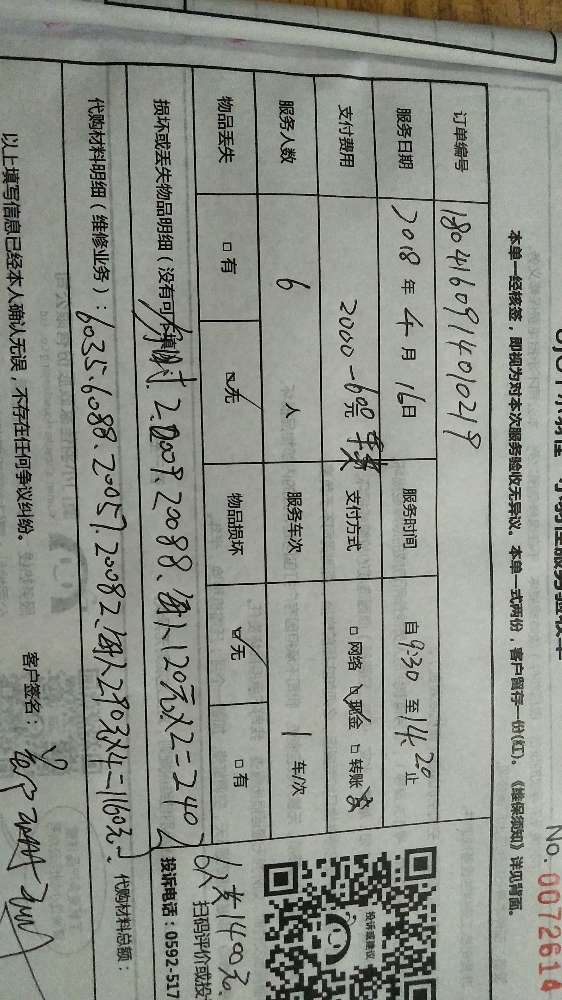 No. 0072614
本单一经核签，即视为对本次服务验收无异议。本单一式两份，客户留存一份(红)。《维保须知》详见背面。
订单编号 1804160914010219
服务日期 2018 年 4 月 16 日 服务时间 自 9:30 至 14:20 止
支付费用 2000-600 元 支付方式 □ 网络 ☑ 现金 □ 转账
服务人数 6 人 服务车次 1 车/次
物品丢失 □ 有 ☑ 无 物品损坏 ☑ 无 □ 有
损坏或丢失物品明细（没有可不填
20088、每人120元×2=240
代购材料明细（维修业务）：6035.6088.20057.20082、每人290元×4=1160元
代购材料总额：
6人支1400元
投诉或建议
扫码评价或投
投诉电话：0592-517
以上填写信息已经本人确认无误，不存在任何争议纠纷。
客户签名：